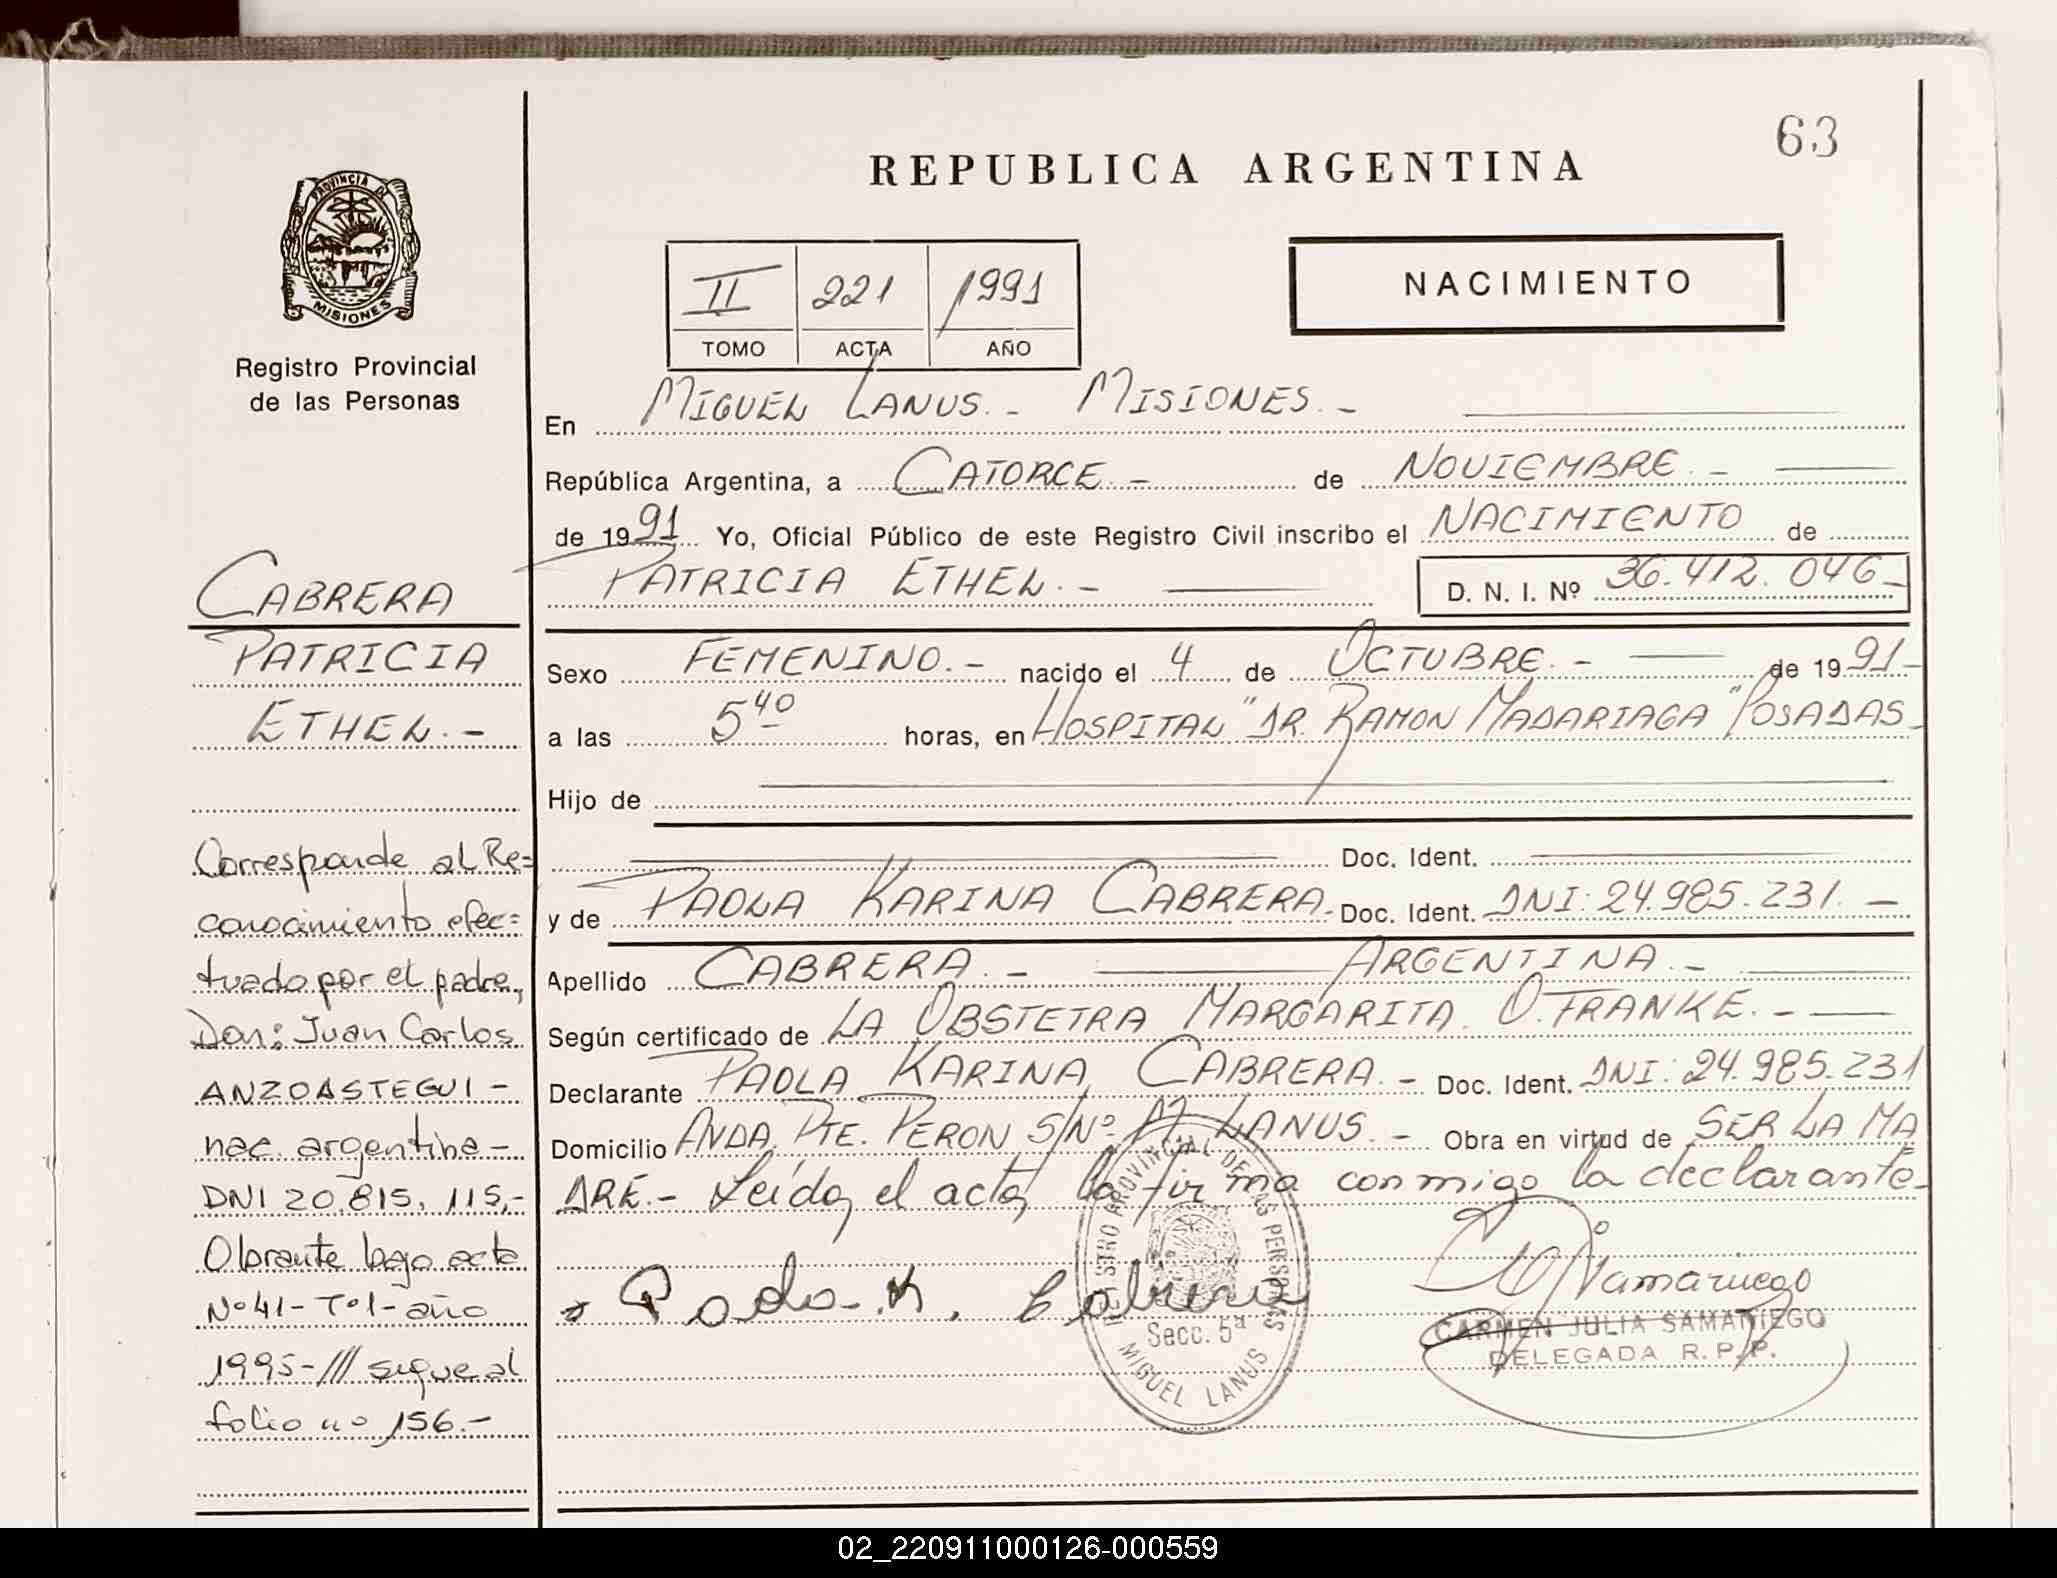 63
REPUBLICA ARGENTINA
PROVINCIA DE
MISIONES
Registro Provincial
de las Personas
II 221 1991
TOMO ACTA AÑO
NACIMIENTO
En MIGUEL LANUS.- MISIONES.-
República Argentina, a CATORCE.- de NOVIEMBRE.-
de 1991 Yo, Oficial Público de este Registro Civil inscribo el NACIMIENTO de
PATRICIA ETHEL.- D. N. I. Nº 36.412.046-
Sexo FEMENINO.- nacido el 4 de OCTUBRE.- de 1991-
a las 5 40 horas, en HOSPITAL "DR. RAMON MADARIAGA" POSADAS-
Hijo de
Doc. Ident.
y de PAOLA KARINA CABRERA.- Doc. Ident. DNI: 24.985.231.-
Apellido CABRERA.- ARGENTINA.-
Según certificado de LA OBSTETRA MARGARITA. O. FRANKE.-
Declarante PAOLA KARINA CABRERA.- Doc. Ident. DNI: 24.985.231
Domicilio AVDA. PTE. PERON S/Nº M. LANUS.- Obra en virtud de SER LA MA
DRE.- Leída el acta la firma conmigo la declarante-
Paola K. Cabrera
REGISTRO PROVINCIAL DE LAS PERSONAS
Secc. 5ª
MIGUEL LANUS
CARMEN JULIA SAMANIEGO
DELEGADA R.P.P.
CABRERA
PATRICIA
ETHEL.-
Corresponde al Re=
conocimiento efec=
tuado por el padre,
Don: Juan Carlos
ANZOASTEGUI-
nac. argentina-
DNI 20.815.115,-
Obrante bajo acta
Nº 41- Tº 1- año
1995-/// sigue al
folio nº 156.-
02_220911000126-000559